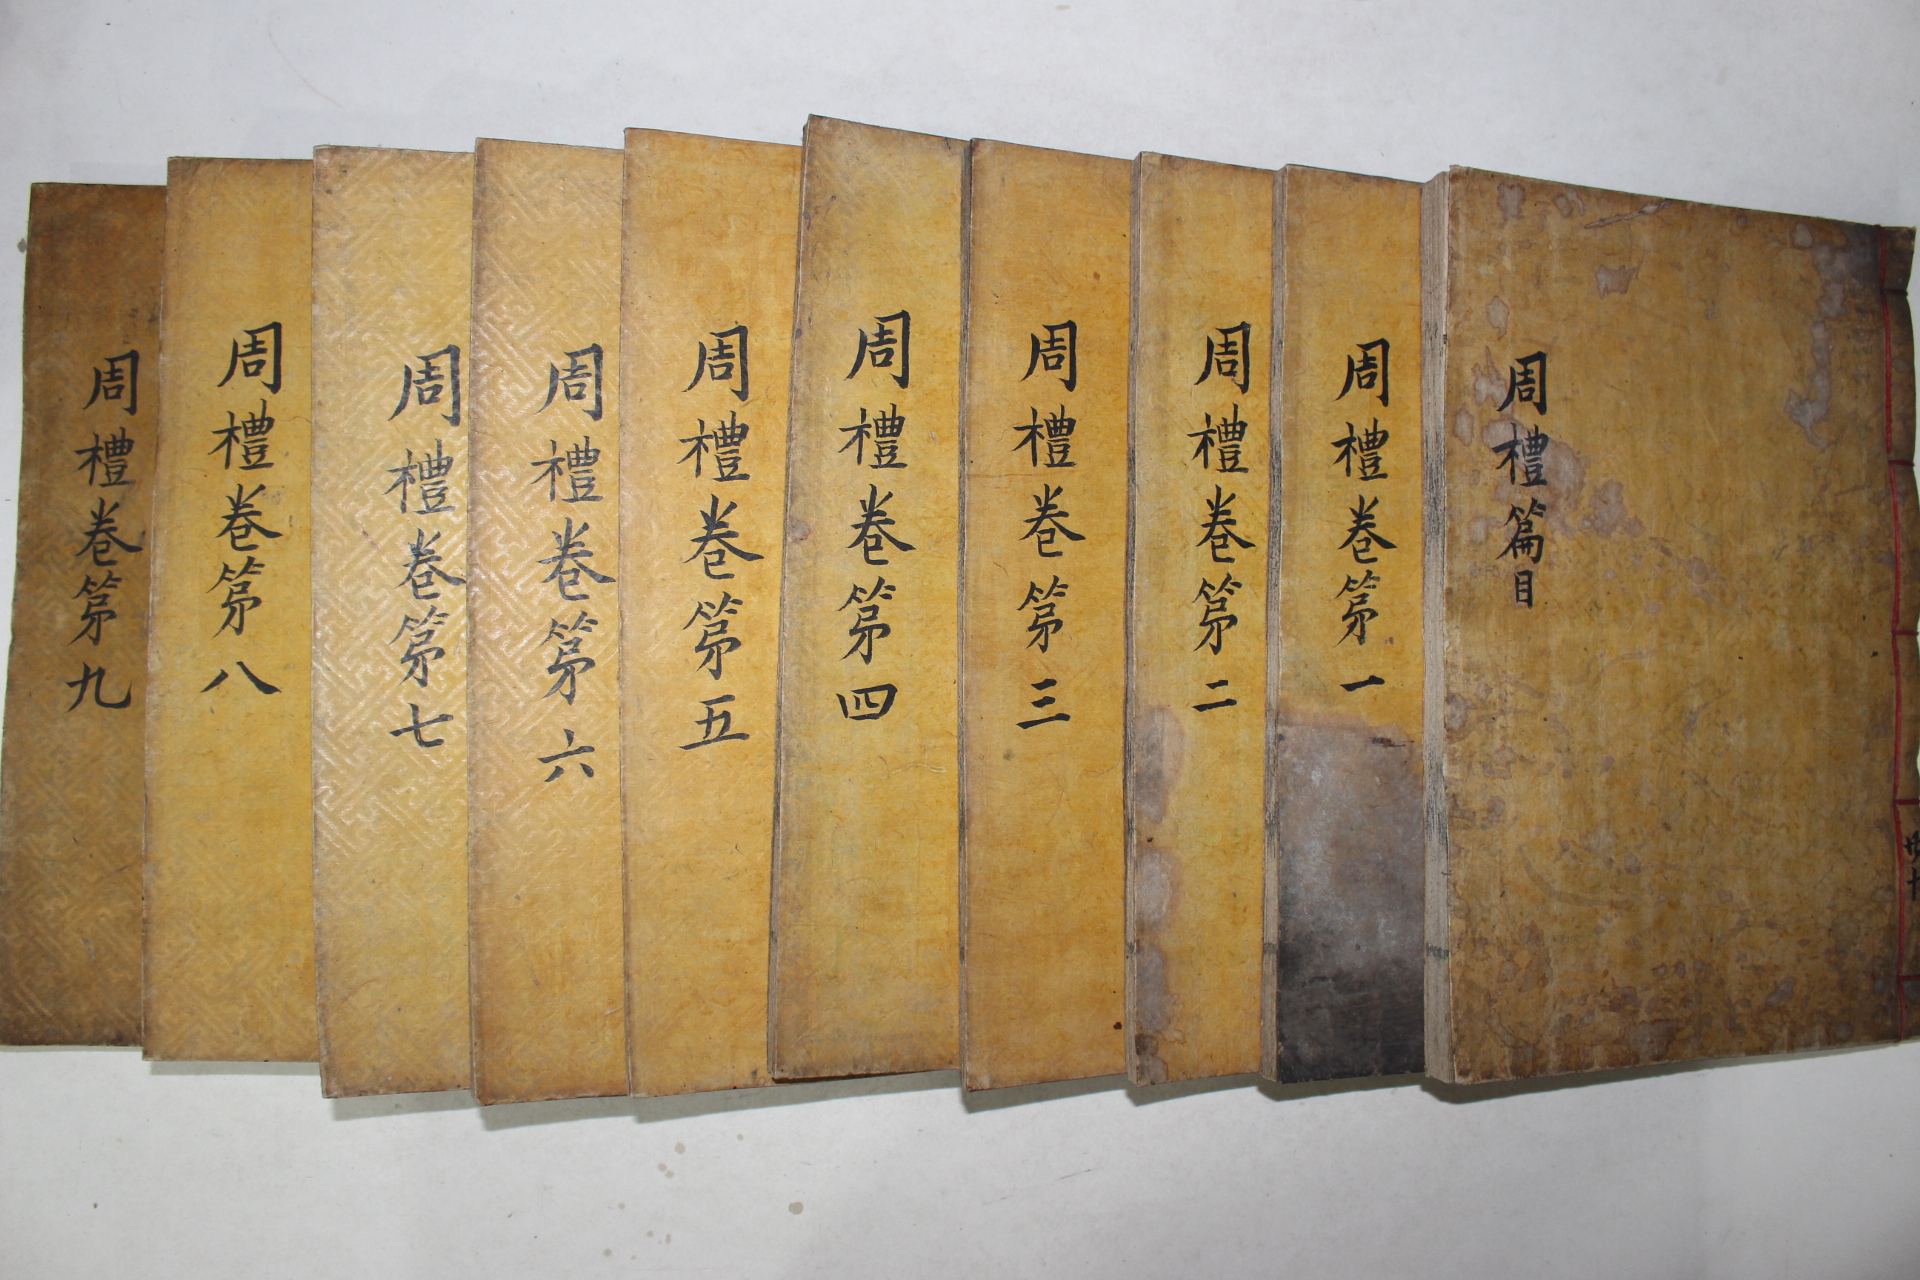 周禮篇目
周禮卷第一
周禮卷第二
周禮卷第三
周禮卷第四
周禮卷第五
周禮卷第六
周禮卷第七
周禮卷第八
周禮卷第九